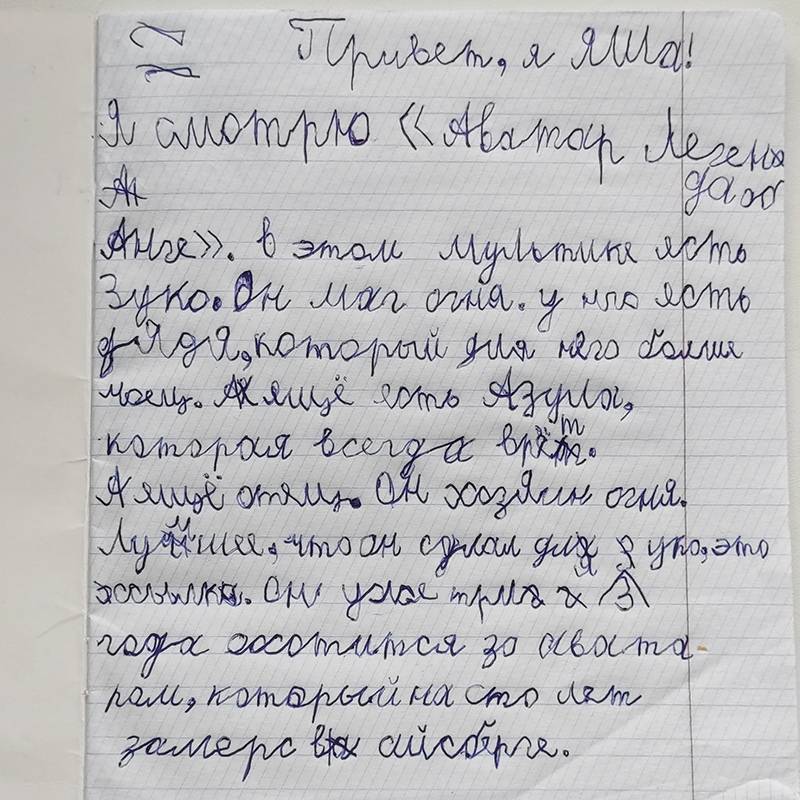 12 Привет, я Яша!
Я смотрю «Аватар Легенда об
Анге». в этом мультике ясть
Зуко. Он маг огня. у нго ясть
дядя, который для няго болше
ящё есть Азула,
которая всегда врёт.
А ящё отец. ОН хозяин огня.
Лучшее, что он сделал для зуко, это
ссылка. Он уже три
года охотится за авата-
ром, который на сто лят
замерс в айсберге.